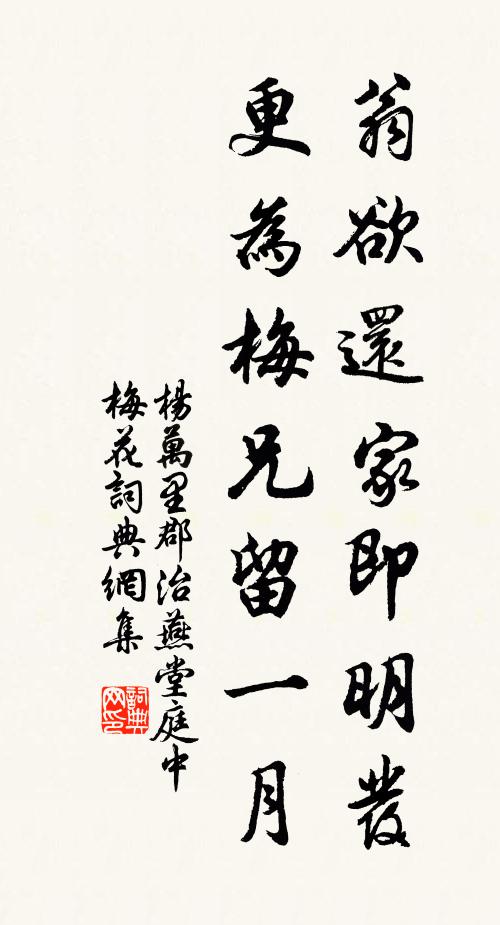 翁欲還家即明發
更為梅兄留一月
楊萬里郡治燕堂庭中
梅花詞典網集
詞典網印